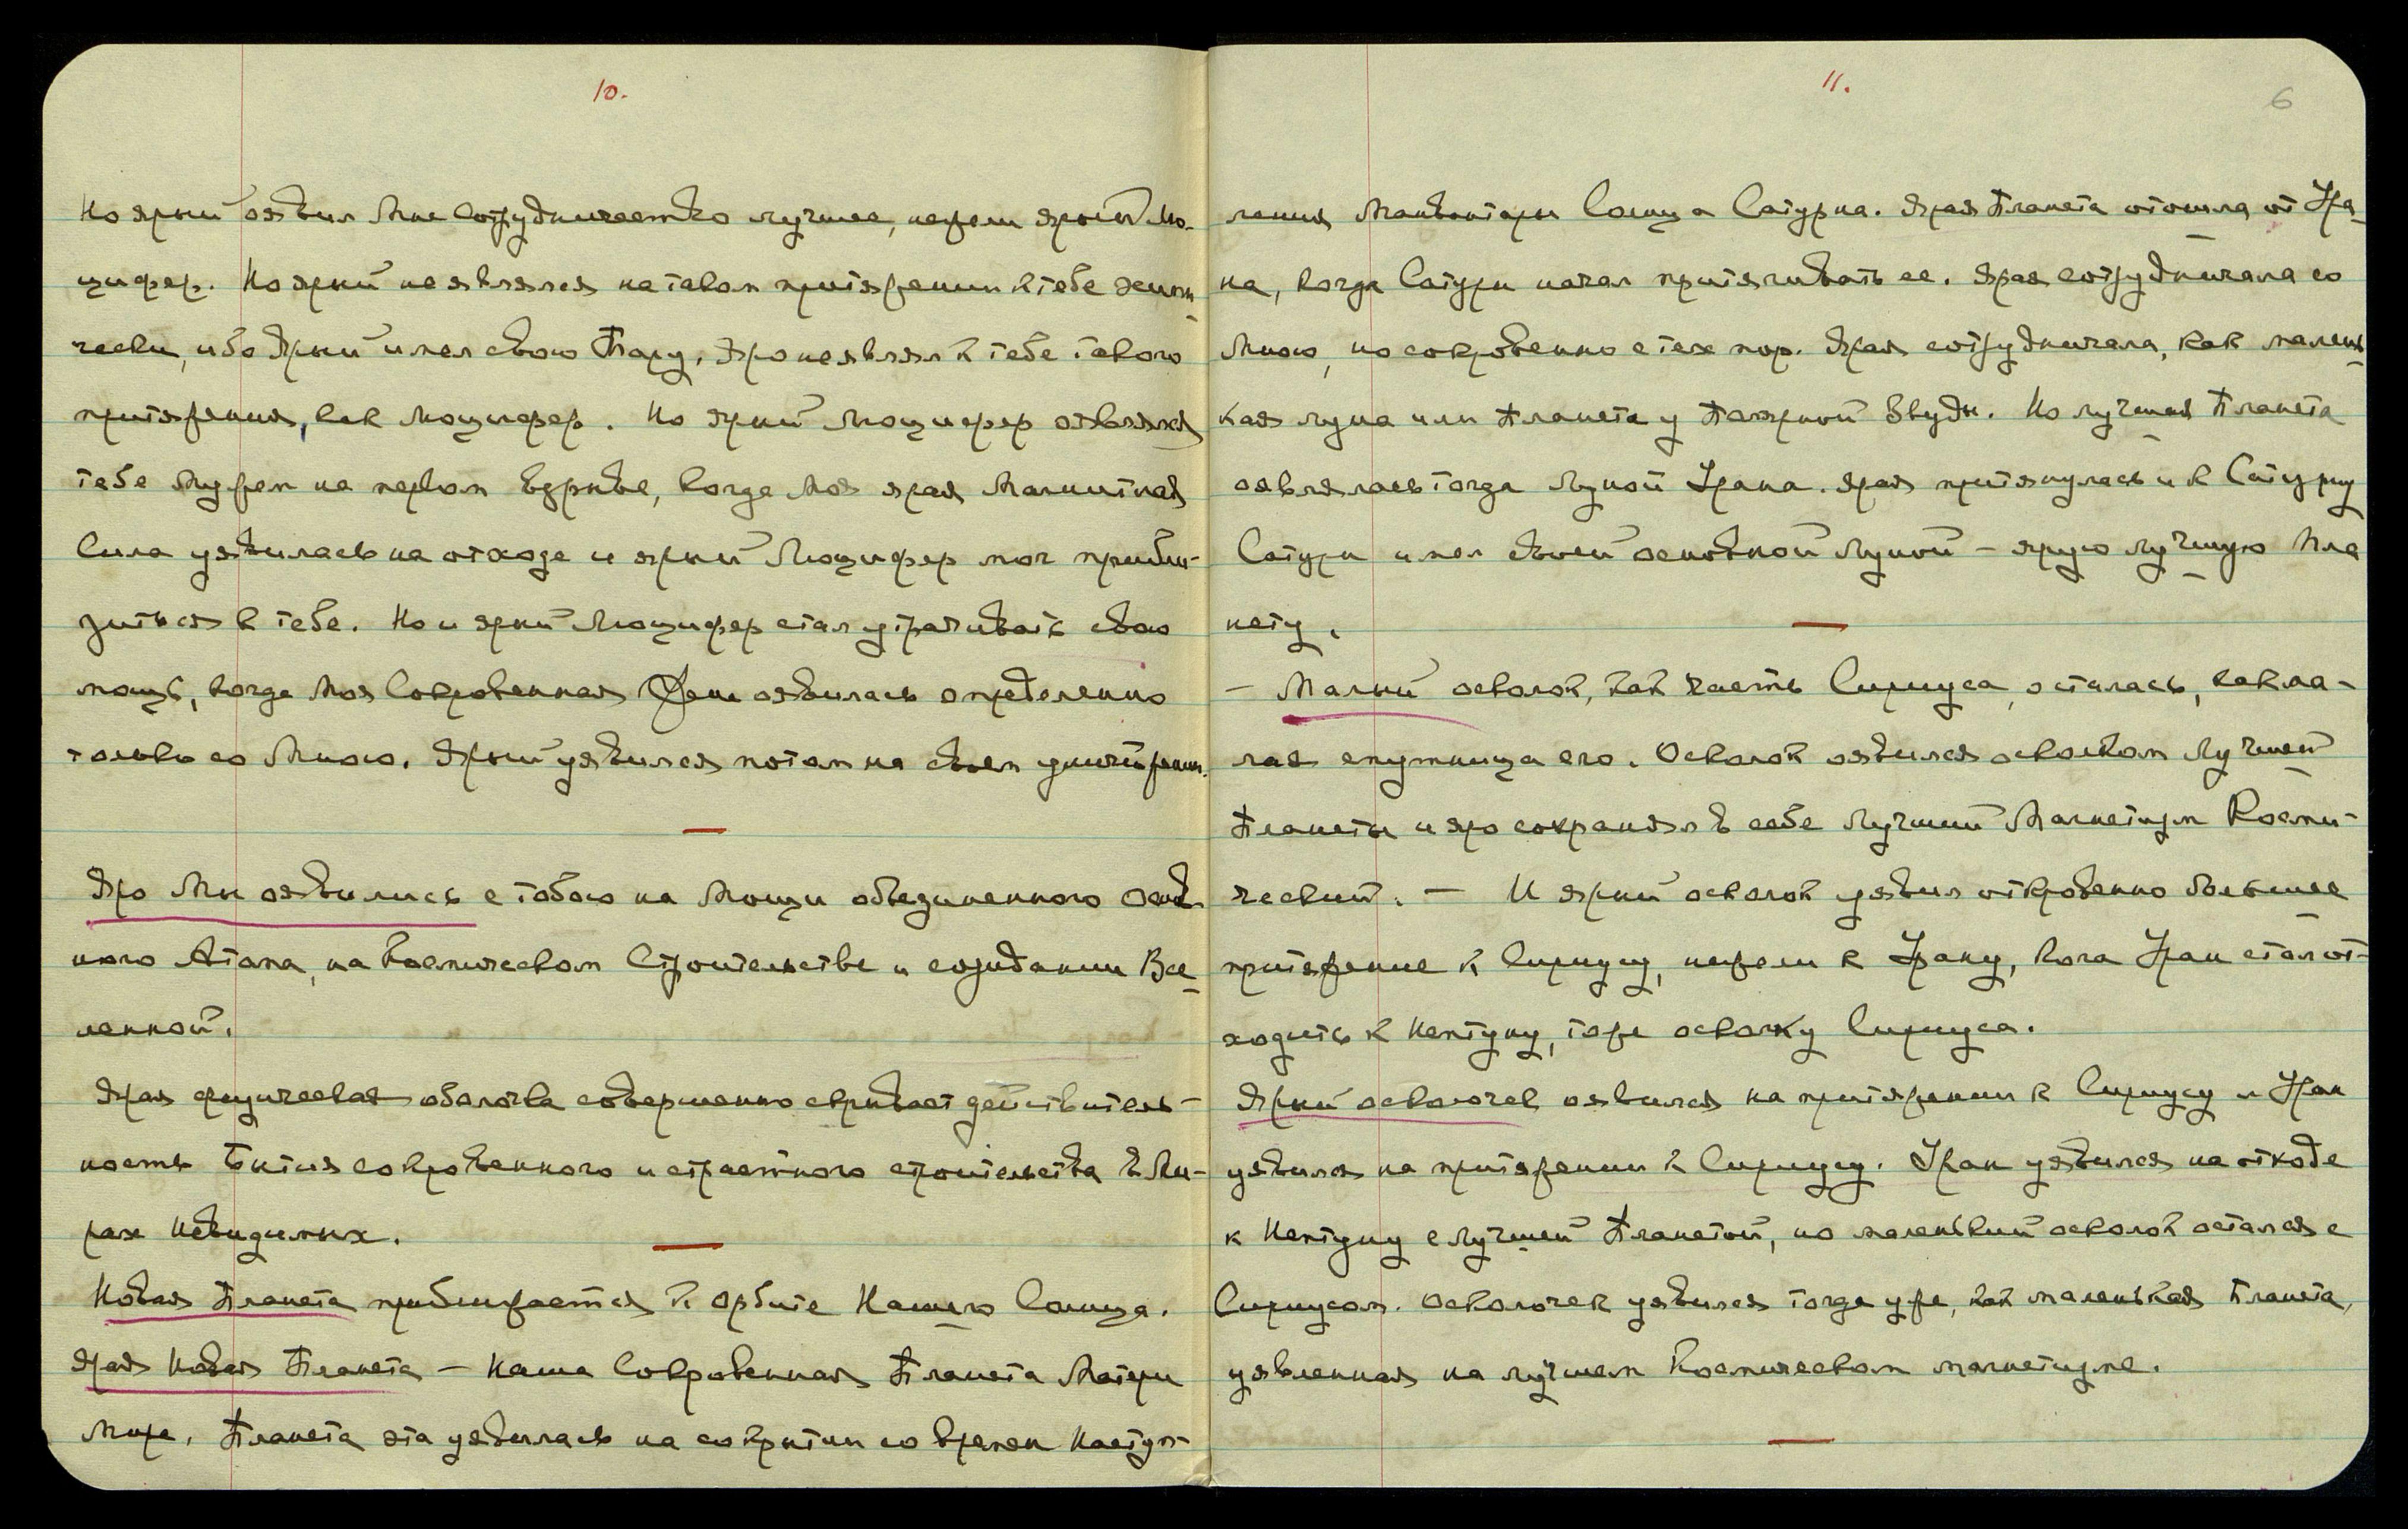 10.
Но ярый оявил Мне Сотрудничество лучшее, нежели ярый Лю-
цифер. Но ярый не являлся на таком притяжении к тебе земни-
чески, ибо Ярый имел свою Пару. Яро не являл к тебе такого
притяжения, как Люцифер. Но ярый Люцифер оявлялся
тебе Мужем на первом , когда Моя ярая Магнитная
Сила уявилась на отходе и ярый Люцифер мог прибли-
зиться к тебе. Но и ярый Люцифер стал утрачивать свою
мощь, когда Моя Сокровенная Жена оявилась определенно
только со Мною. Ярый уявился потом на своем уничтожении.
Яро Мы оявились с тобою на Мощи объединенного Основ-
ного Атома, на Космическом Строительстве и созидании Все-
ленной.
Ярая физическая оболочка совершенно скрывает действитель-
ность Бытия сокровенного и страстного строительства в Ми-
рах Невидимых.
Новая Планета приближается к орбите Нашего Солнца.
Ярая Новая Планета – Наша Сокровенная Планета Матери
Мира. Планета эта уявилась на сокрытии со времен Наступ-
11.
6
ления Манвантары Солнца Сатурна. Ярая Планета отошла от Ура-
на, когда Сатурн начал притягивать ее. Ярая сотрудничала со
Мною, но сокровенно с тех пор. Ярая сотрудничала, как малень-
кая луна или Планета у Полярной Звузды. Но лучшая Планета
оявлялась тогда Луной Урана. Ярая притянулась и к Сатурну
Сатурн имел своей основной Луной – ярую лучшую Пла
нету.
– Малый осколок, как часть Сириуса осталась, как ма-
лая спутница его. Осколок оявился осколком Лучшей
Планеты и яро сохранял в себе Лучший Магнетизм Косми-
ческий. – И ярый осколок уявил откровенно большее
притяжение к Сириусу, нежели к Урану, кога Уран стал от-
ходить к Нептуну, тоже осколку Сириуса.
Ярый осколочек оявился на притяжении к Сириусу и Уран
уявился на притяжении к Сириусу. Уран уявился на отходе
к Нептуну с Лучшей Планетой, но маленький осколок остался с
Сириусом. Осколочек уявился тогда уже, как маленькая Планета,
уявленная на лучшем Космическом магнетизме.